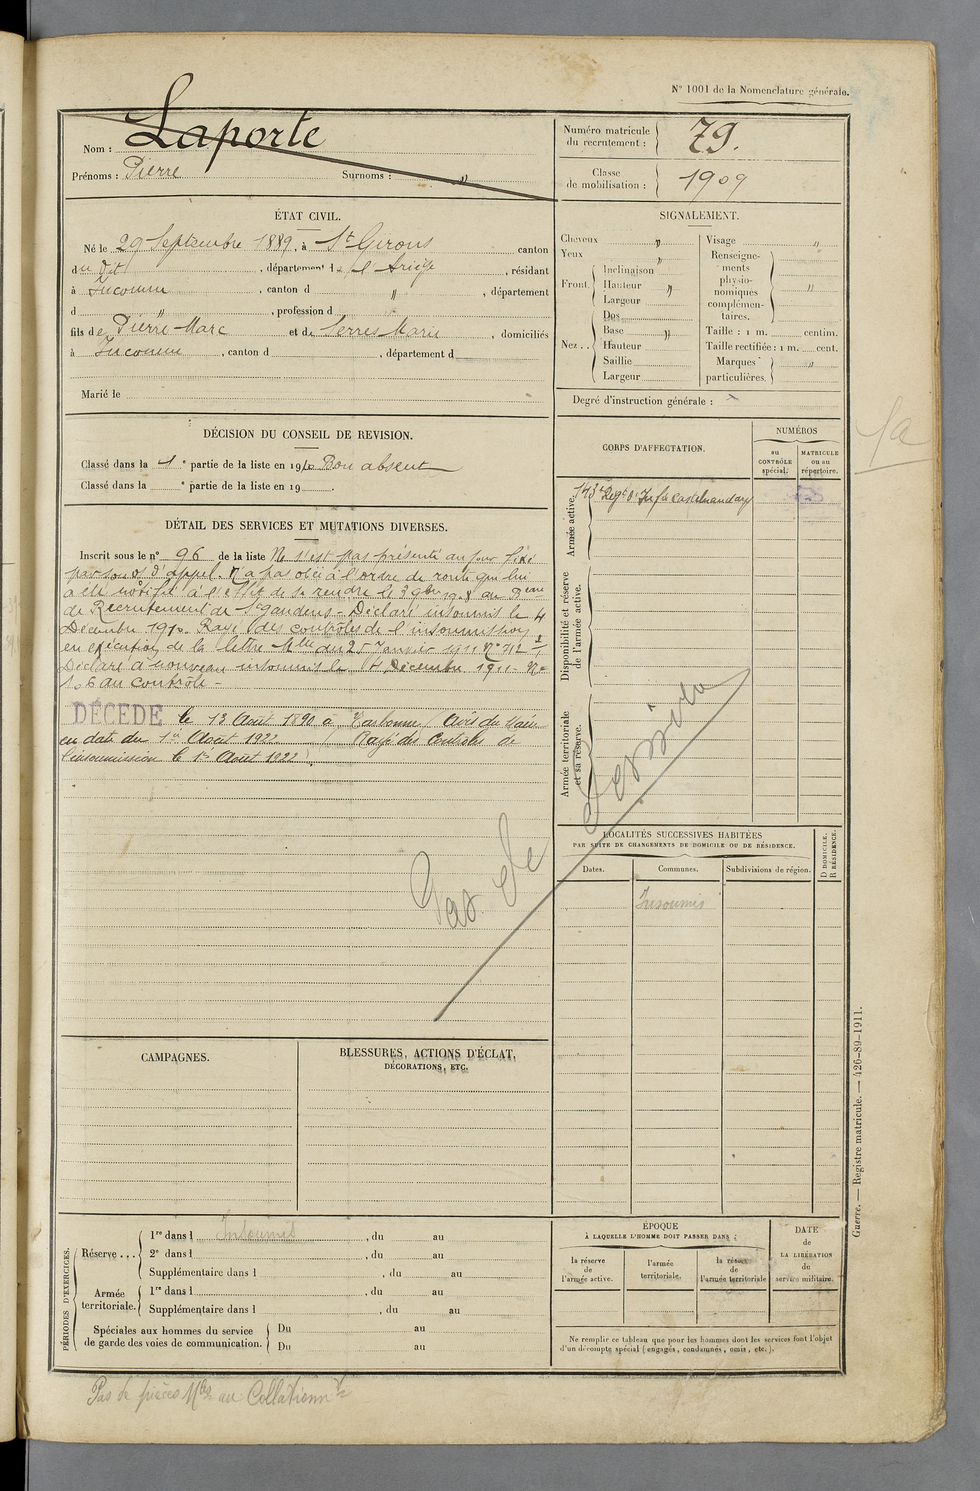 N° 1001 de la Nomenclature générale.
Nom : Laporte
Prénoms : Pierre Surnoms : "
Numéro matricule du recrutement : 79.
Classe de mobilisation : 1909
ÉTAT CIVIL.
Né le 29 Septembre 1889, à St Girons canton
du dit, département de l'Ariège, résidant
à Inconnu, canton d ", département
d ", profession d
fils de Pierre Marc et de Serres Marie, domiciliés
à Inconnu, canton d , département d
Marié le
SIGNALEMENT.
Cheveux "
Yeux "
Front. Inclinaison
Hauteur "
Largeur
Nez.. Dos
Base "
Hauteur
Saillie
Largeur
Visage "
Renseigne-
ments
physio-
nomiques
complémen-
taires. "
Taille : 1 m. centim.
Taille rectifiée : 1 m. cent.
Marques
particulières. "
Degré d'instruction générale :
DÉCISION DU CONSEIL DE REVISION.
Classé dans la 1e partie de la liste en 1910 Bon absent
Classé dans la e partie de la liste en 19 .
DÉTAIL DES SERVICES ET MUTATIONS DIVERSES.
Inscrit sous le n° 96 de la liste Ne s'est pas présenté au jour fixé
par son os d'appel. N'a pas obéi à l'ordre de route qui lui
a été notifié à l'effet de se rendre le 3 9bre 19 8 au Bureau
de Recrutement de St Gaudens - Déclaré insoumis le 4
Décembre 1910. Rayé des contrôles de l'insoumission
en exécution de la lettre Mlle du 25 Janvier 1911 N° 412
Déclaré d'nouveau insoumis le 4 Décembre 1911 - N°
106 au contrôle -
DÉCÉDÉ le 13 Août 1890 à Narbonne (Avis du Maire
en date du 1er Août 1922) Rayé des Contrôles de
l'insoumission le 1er Août 1922.
Pas de dossier
CORPS D'AFFECTATION.
NUMÉROS
au
CONTRÔLE
spécial.
MATRICULE
ou au
répertoire.
Armée active.
143e Regt d'Inf ie Castelnaudary
Disponibilité et réserve
de l'armée active.
Armée territoriale
et sa réserve.
LOCALITÉS SUCCESSIVES HABITÉES
PAR SUITE DE CHANGEMENTS DE DOMICILE OU DE RÉSIDENCE.
Dates. Communes. Subdivisions de région.
D DOMICILE.
R RÉSIDENCE.
Insoumis
CAMPAGNES.
BLESSURES, ACTIONS D'ÉCLAT,
DÉCORATIONS, ETC.
PÉRIODES D'EXERCICES.
Réserve ... 1re dans l Insoumis , du au
2e dans l , du au
Supplémentaire dans l , du au
Armée territoriale. 1re dans l , du au
Supplémentaire dans l , du au
Spéciales aux hommes du service
de garde des voies de communication.
Du au
Du au
ÉPOQUE
À LAQUELLE L'HOMME DOIT PASSER DANS :
la réserve
de
l'armée active.
l'armée
territoriale.
la réserve
de
l'armée territoriale
DATE
de
LA LIBÉRATION
de
service militaire.
Ne remplir ce tableau que pour les hommes dont les services font l'objet
d'un décompte spécial (engagés, condamnés, omis, etc.).
Guerre. — Registre matricule. — 426-89-1911.
Pas de pièces Mles au Collationnt